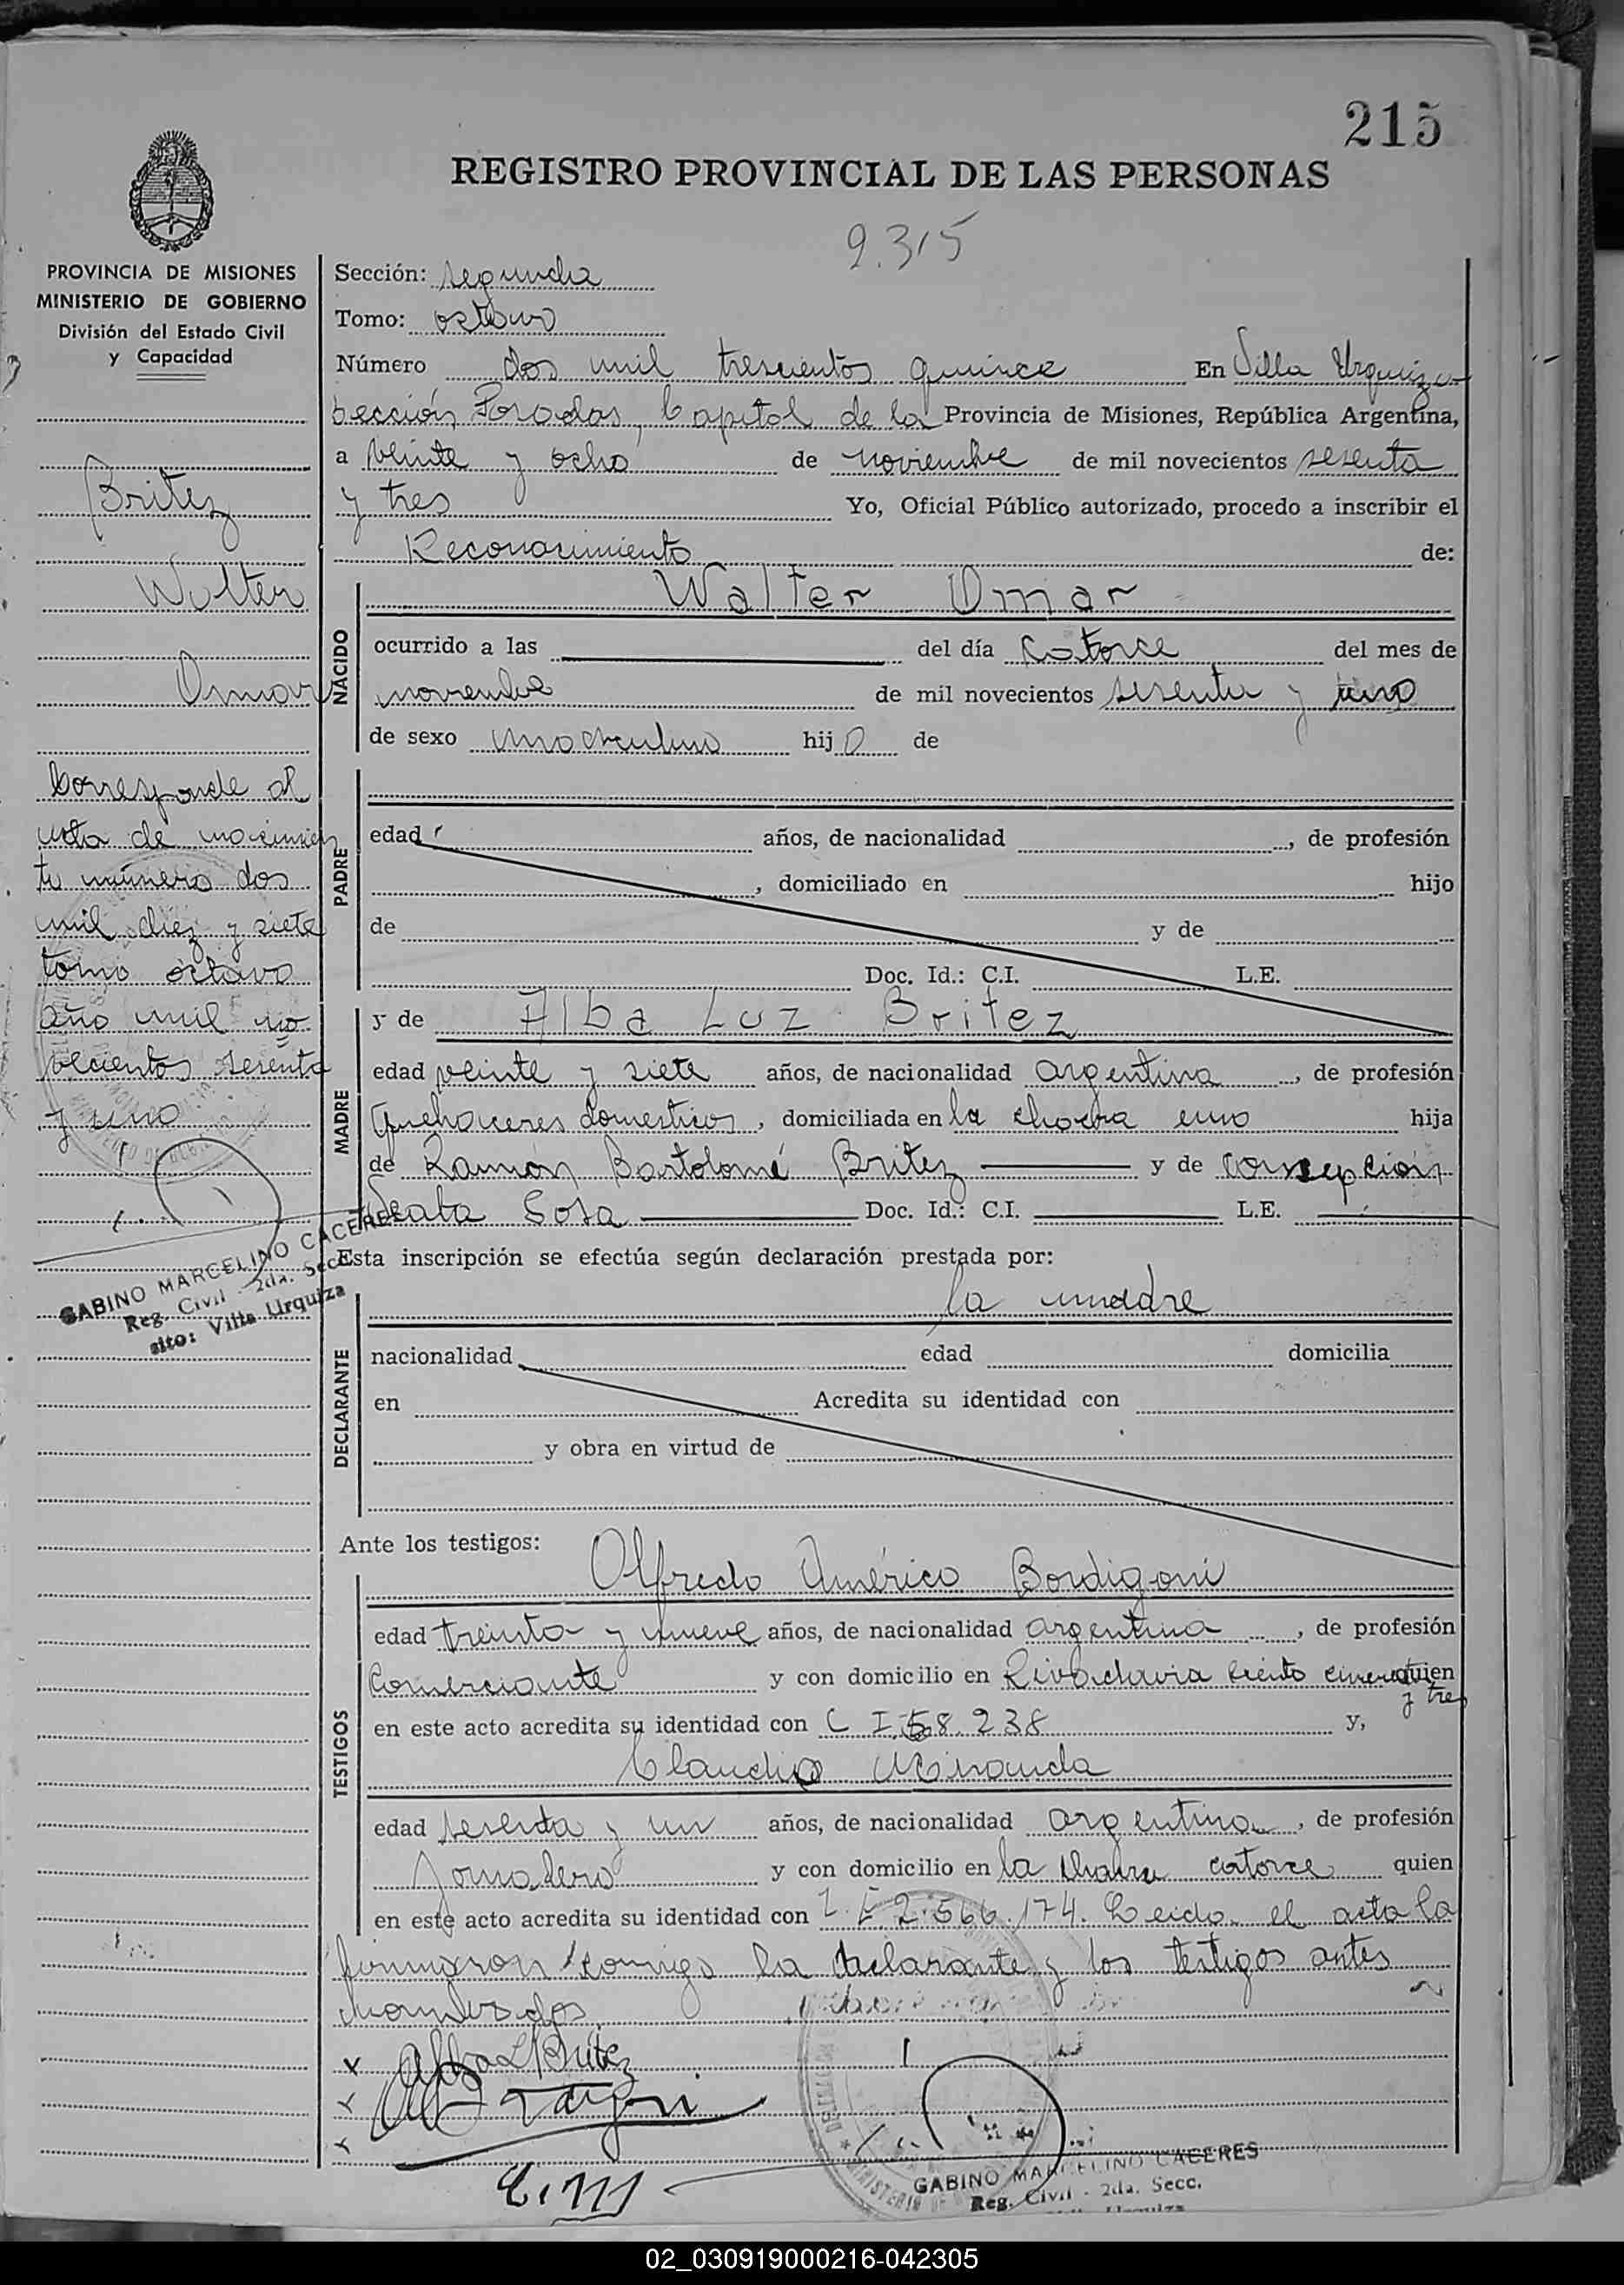 215
REGISTRO PROVINCIAL DE LAS PERSONAS
2.315
PROVINCIA DE MISIONES
MINISTERIO DE GOBIERNO
División del Estado Civil
y Capacidad
Britez
Walter
Omar
Corresponde al
acta de nacimien
to número dos
mil diez y siete
tomo octavo
año mil no
vecientos sesenta
y uno
GABINO MARCELINO CACERES
Reg. Civil - 2da. Secc.
sito: Villa Urquiza
Sección: segunda
Tomo: octavo
Número dos mil trescientos quince En Villa Urquiza
sección Posadas, Capital de la Provincia de Misiones, República Argentina,
a veinte y ocho de noviembre de mil novecientos sesenta
y tres Yo, Oficial Público autorizado, procedo a inscribir el
Reconocimiento de:
NACIDO
Walter Omar
ocurrido a las del día catorce del mes de
noviembre de mil novecientos sesenta y uno
de sexo masculino hijo de
PADRE
edad años, de nacionalidad , de profesión
, domiciliado en hijo
de y de
Doc. Id.: C.I. L.E.
MADRE
y de Alba Luz Britez
edad veinte y siete años, de nacionalidad argentina, de profesión
quehaceres domesticos, domiciliada en la chacra uno hija
de Ramón Bartolomé Britez y de Consepción
Sosa Doc. Id.: C.I. L.E.
Esta inscripción se efectúa según declaración prestada por:
DECLARANTE
la madre
nacionalidad edad domicilia
en Acredita su identidad con
y obra en virtud de
Ante los testigos:
TESTIGOS
Alfredo Américo Bordigoni
edad treinta y nueve años, de nacionalidad argentina, de profesión
Comerciante y con domicilio en Rivadavia ciento quien
y tres
en este acto acredita su identidad con C I 58.238 y,
Claudio Miranda
edad sesenta y un años, de nacionalidad argentina, de profesión
Jornalero y con domicilio en la chacra catorce quien
en este acto acredita su identidad con L. E 2.566.174. Leida el acta la
firmaron conmigo la declarante y los testigos antes
nombrados.
x Alba L Britez
x
x
GABINO MARCELINO CACERES
Reg. Civil - 2da. Secc.
02_030919000216-042305